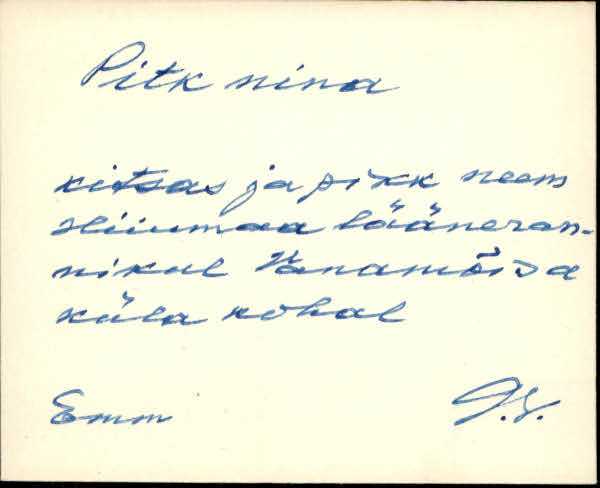 Pitk nina
kitsas ja pikk neem
Hiiumaa lääneran-
nikul Vanamõisa
küla kohal
Emm